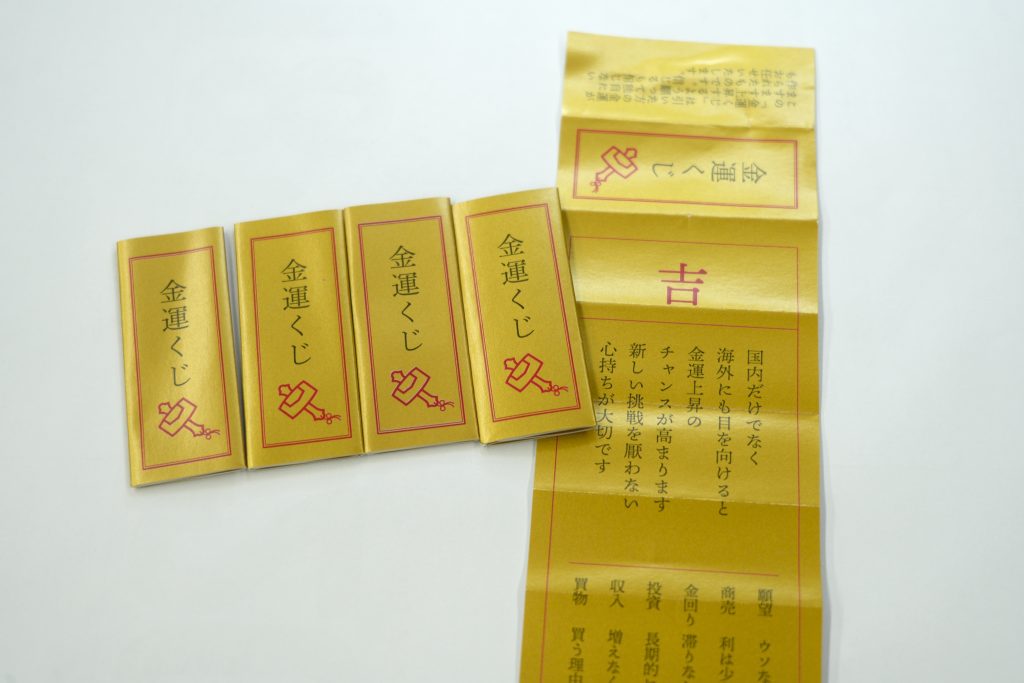 金運くじ
金運くじ
金運くじ
金運くじ
金運くじ
吉
国内だけでなく
海外にも目を向けると
金運上昇の
チャンスが高まります
新しい挑戦を厭わない
心持ちが大切です
願望 ウソな
商売 利は少
金回り 滞りな
投資 長期的に
収入 増えなく
買物 買う理由